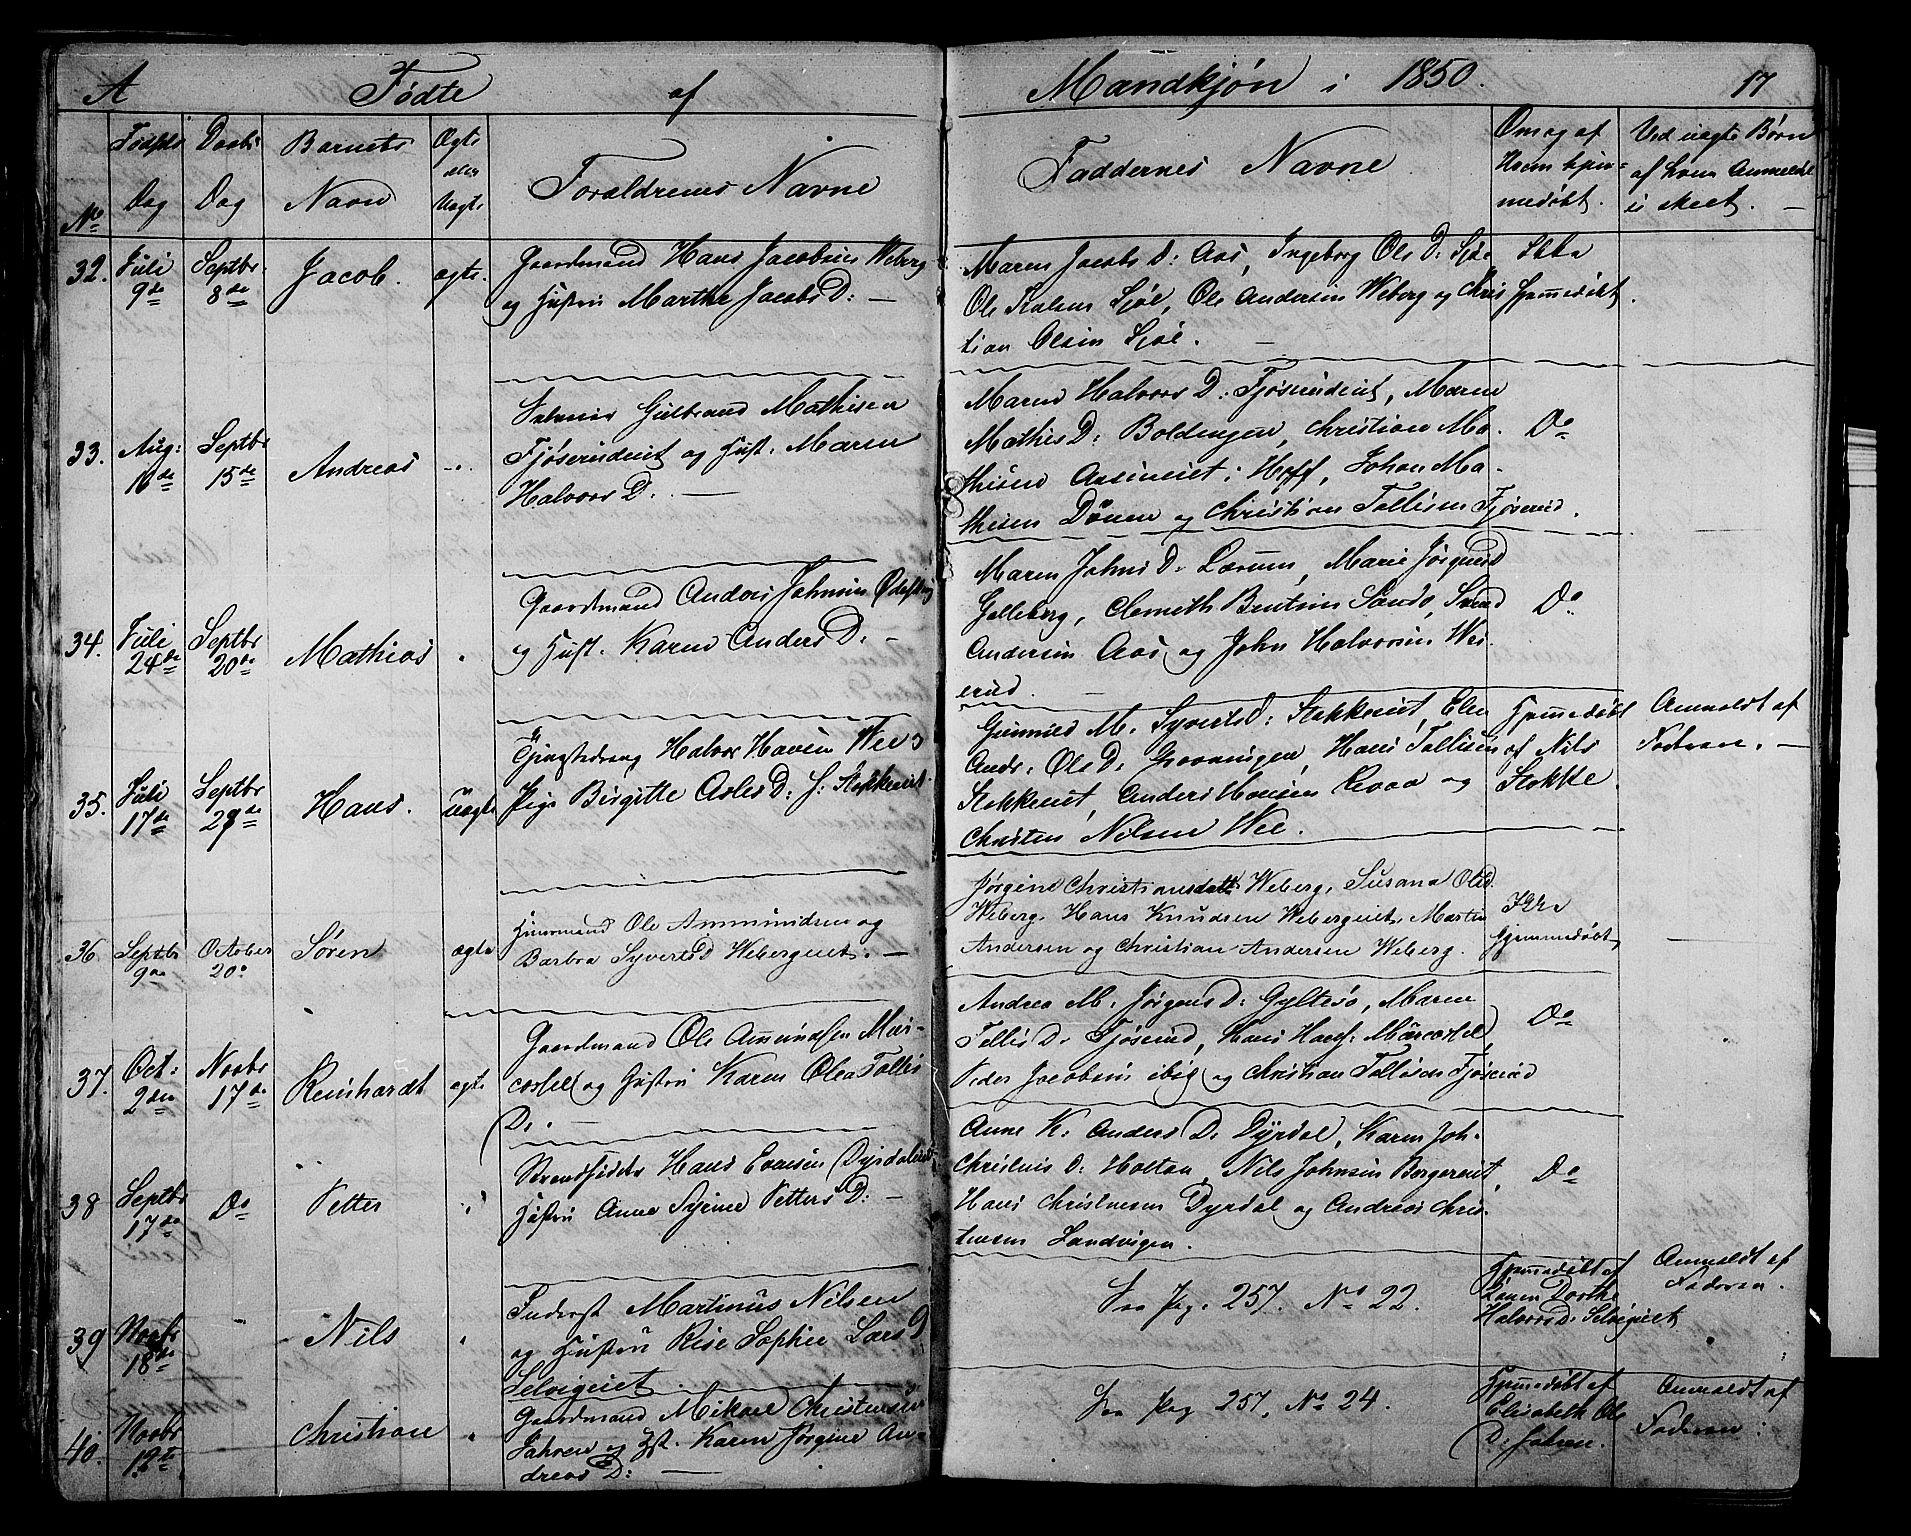 A Fødte af Mandkjøn i 1850. 17
No Fødsels Dag Daabs Dag Barnets Navn Ægte eller Uægte Forældrenes Navne Faddernes Navne Om og af Hvem hjemmedøbt. Ved uægte Børn af hvem Anmeldelse er skeet. —
32. Juli 9de Septbr 8de Jacob. ægte.
Gaardmand Hans Jacobsen Weberg
og Hustru Marthe Jacobs D: —
Maren Jacobs D: Aas, Ingeborg Ols D: Sjøl
Ole Ols Sjøl, Ole Andersen Weberg og Chris
tian Olsen Sjøl.
Ikke
hjemmedøbt.
33. Aug: 10de Septbr 15de Andreas
Gulbrand Mathisen
Fjøserudeiet og Hust. Maren
Halvors D. —
Maren Halvors D: Fjøserudeiet, Maren
Mathis D: Boldingen, Christian Ma-
thisen i Hoff, Johan Ma-
thisen og Christian Tollisen Fjøserud.
Do
34. Juli 24de Septbr 20de Mathias
Gaardmand Anders Johnsen
og Hust. Karen Anders D: —
Maren Johns D: Lærum, Marie Jørgens D
Gelleberg, Clemeth Bentsen Sando, Svend
Andersen Aas og John Halvorsen Wes
erud.
Do
35. Juli 17de Septbr 29de Hans. uægte
Tjenestedreng Halvor Hansen Wee og
Pige Birgitte Asles D: f: Stokkeeiet
Gunnild M. Syverts D: Stokkeeiet, Elen
Andr: Ols D: Grønningen, Hans Tollisen
Stokkeeiet, Anders Hansen og
Christen Nilsen Wee.
Hjemmedøbt
af Nils
Stokke.
Anmeldt af
Faderen. —
36. Septbr 9de October 20de Søren ægte
Huusmand Ole Ammundsen og
Barbra Syverts D Webergeiet. —
Jørgine Christiansdatt: Weberg, Susana Ols D.
Weberg, Hans Knudsen Webergeiet, Martin
Andersen og Christian Andersen Weberg.
Ikke
hjemmedøbt
37. Oct: 2den Novbr 17de Reinhardt ægte
Gaardmand Ole Amundsen Mar-
costel og Hustru Karen Olea Tollis
D: —
Andrea M: Jørgens D: Gyltesø, Maren
Tollis D: Fjøserud, Hans Hans: Marcostel
Peder Jacobsen ibid og Christian Tollisen Fjøserud
Do
38 Septbr 17de Do Petter
Strandsidder Hans Evensen Dyrdaleiet
Hustru Anne Sirine Petters D. —
Anne K. Anders D: Dyrdal, Karen Joh.
Christens D: Holtan, Nils Johnsen Borgereiet,
Hans Christensen Dyrdal og Andreas Chris
tensen Sandvigen.
Do
39 Novbr 18de Nils
Inderst Martinus Nilsen
og Hustru Rise Sophie Lars D
Selvigeiet.
See Pag. 257. No 22.
Hjemmedøbt af
Dorthe
Halvors D: Selvigeiet
Anmeldt af
Faderen.
40. Novbr 19de Christian
Gaardmand Mikael Christensen
Jahren og Hst. Karen Jørgine An-
dreas D: —
See Pag 257. No 24.
Hjemmedøbt af
Elisabeth Ols
D: Jahren.
Anmeldt af
Faderen: